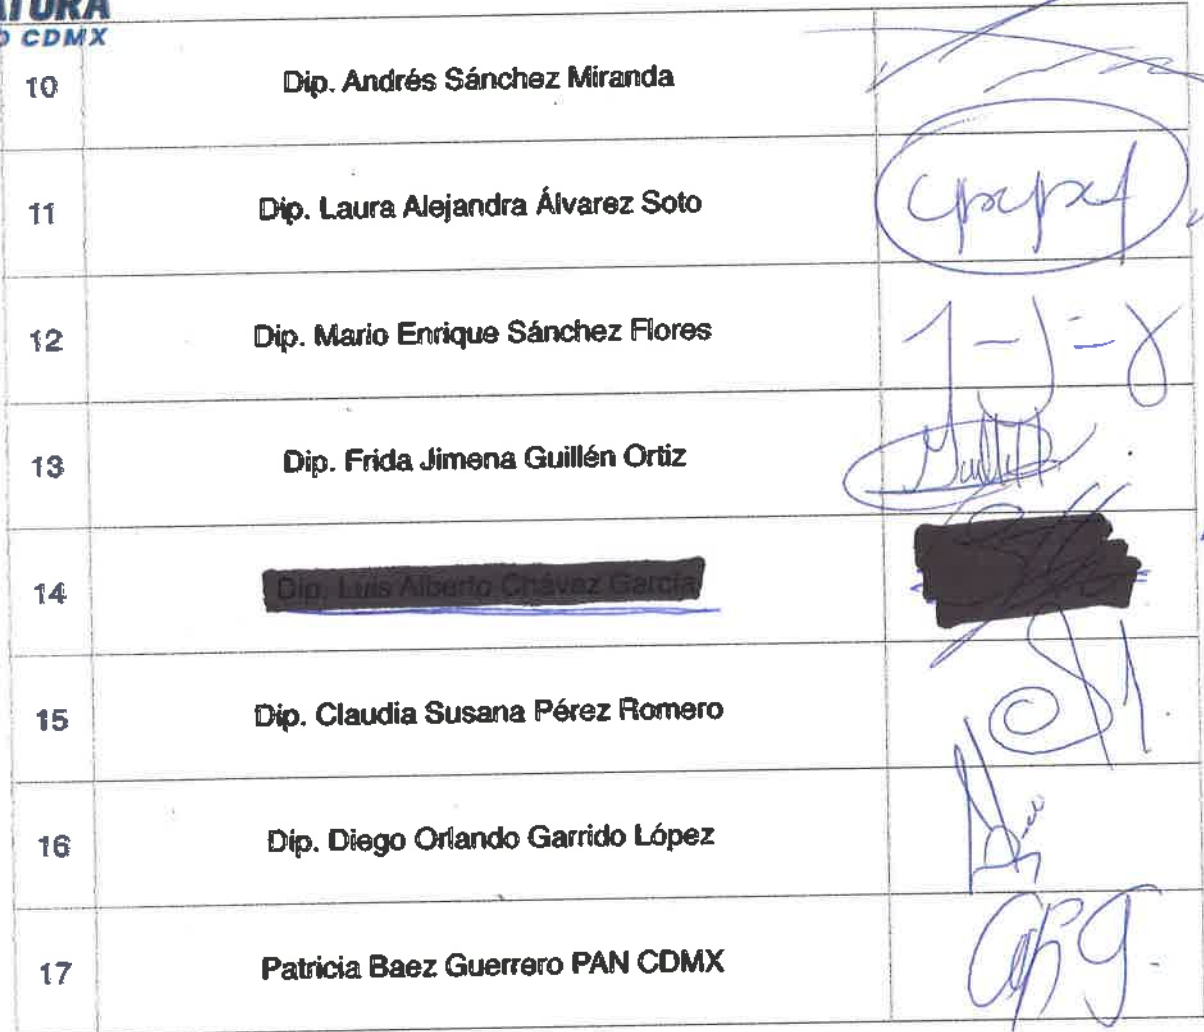 CDMX
10 Dip. Andrés Sánchez Miranda
11 Dip. Laura Alejandra Álvarez Soto
12 Dip. Mario Enrique Sánchez Flores
13 Dip. Frida Jimena Guillén Ortiz
14 Dip. Luis Alberto Chávez García
15 Dip. Claudia Susana Pérez Romero
16 Dip. Diego Orlando Garrido López
17 Patricia Baez Guerrero PAN CDMX